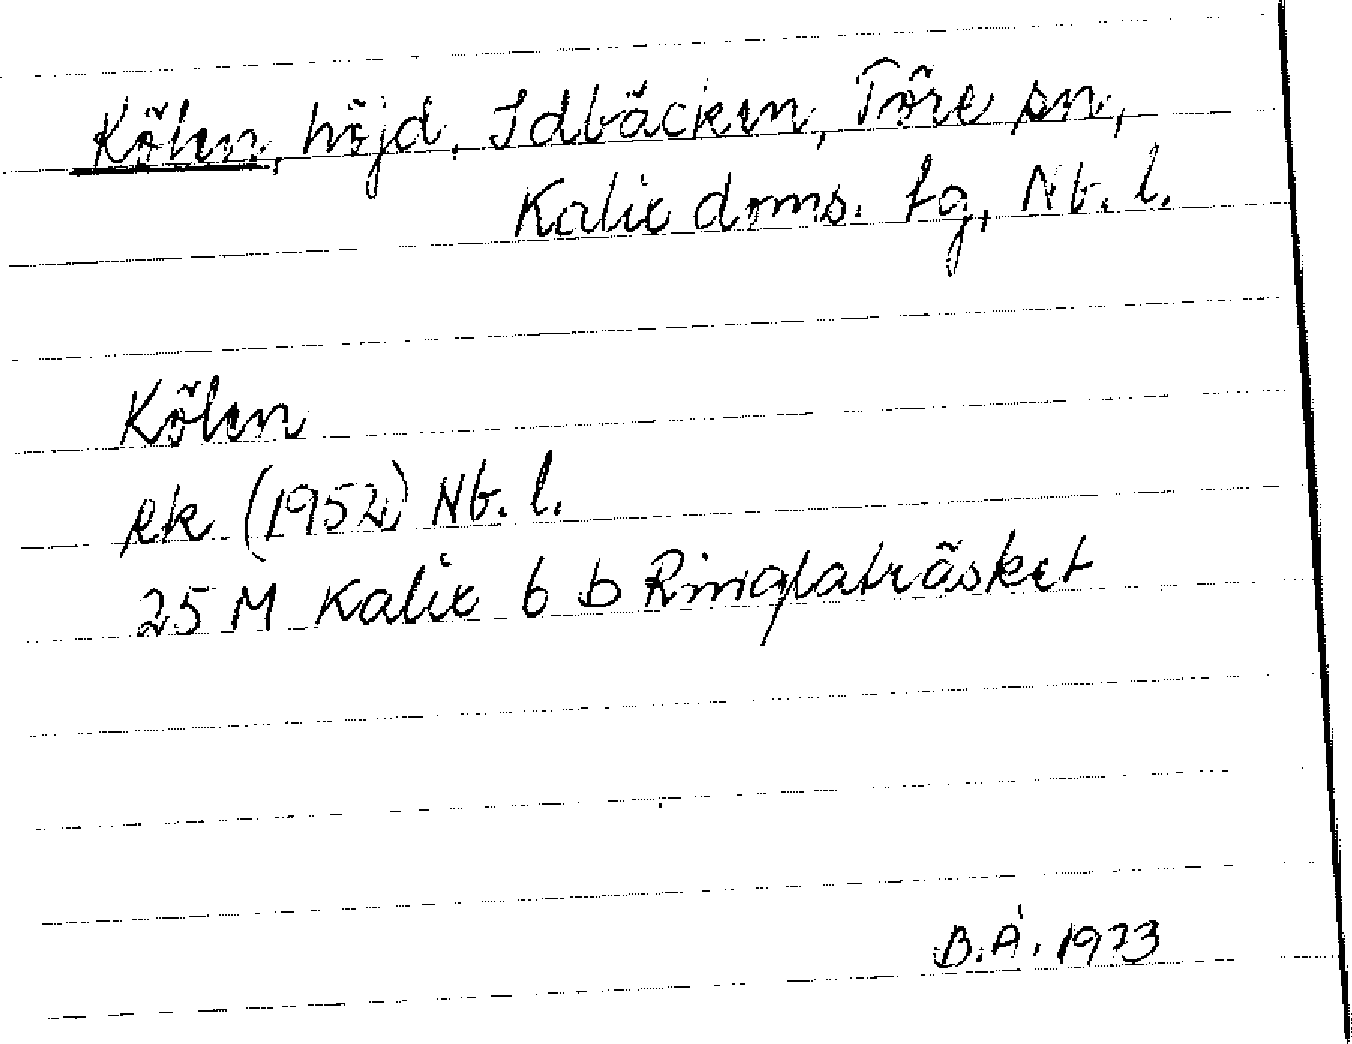 Kölen, höjd, Idbäcken, Töre sn,
Kalix doms. tg, Nb. l.
Kölen
Rk (1952) Nb. l.
25 M Kalix 6 b Ringlaträsket
B.Å. 1973